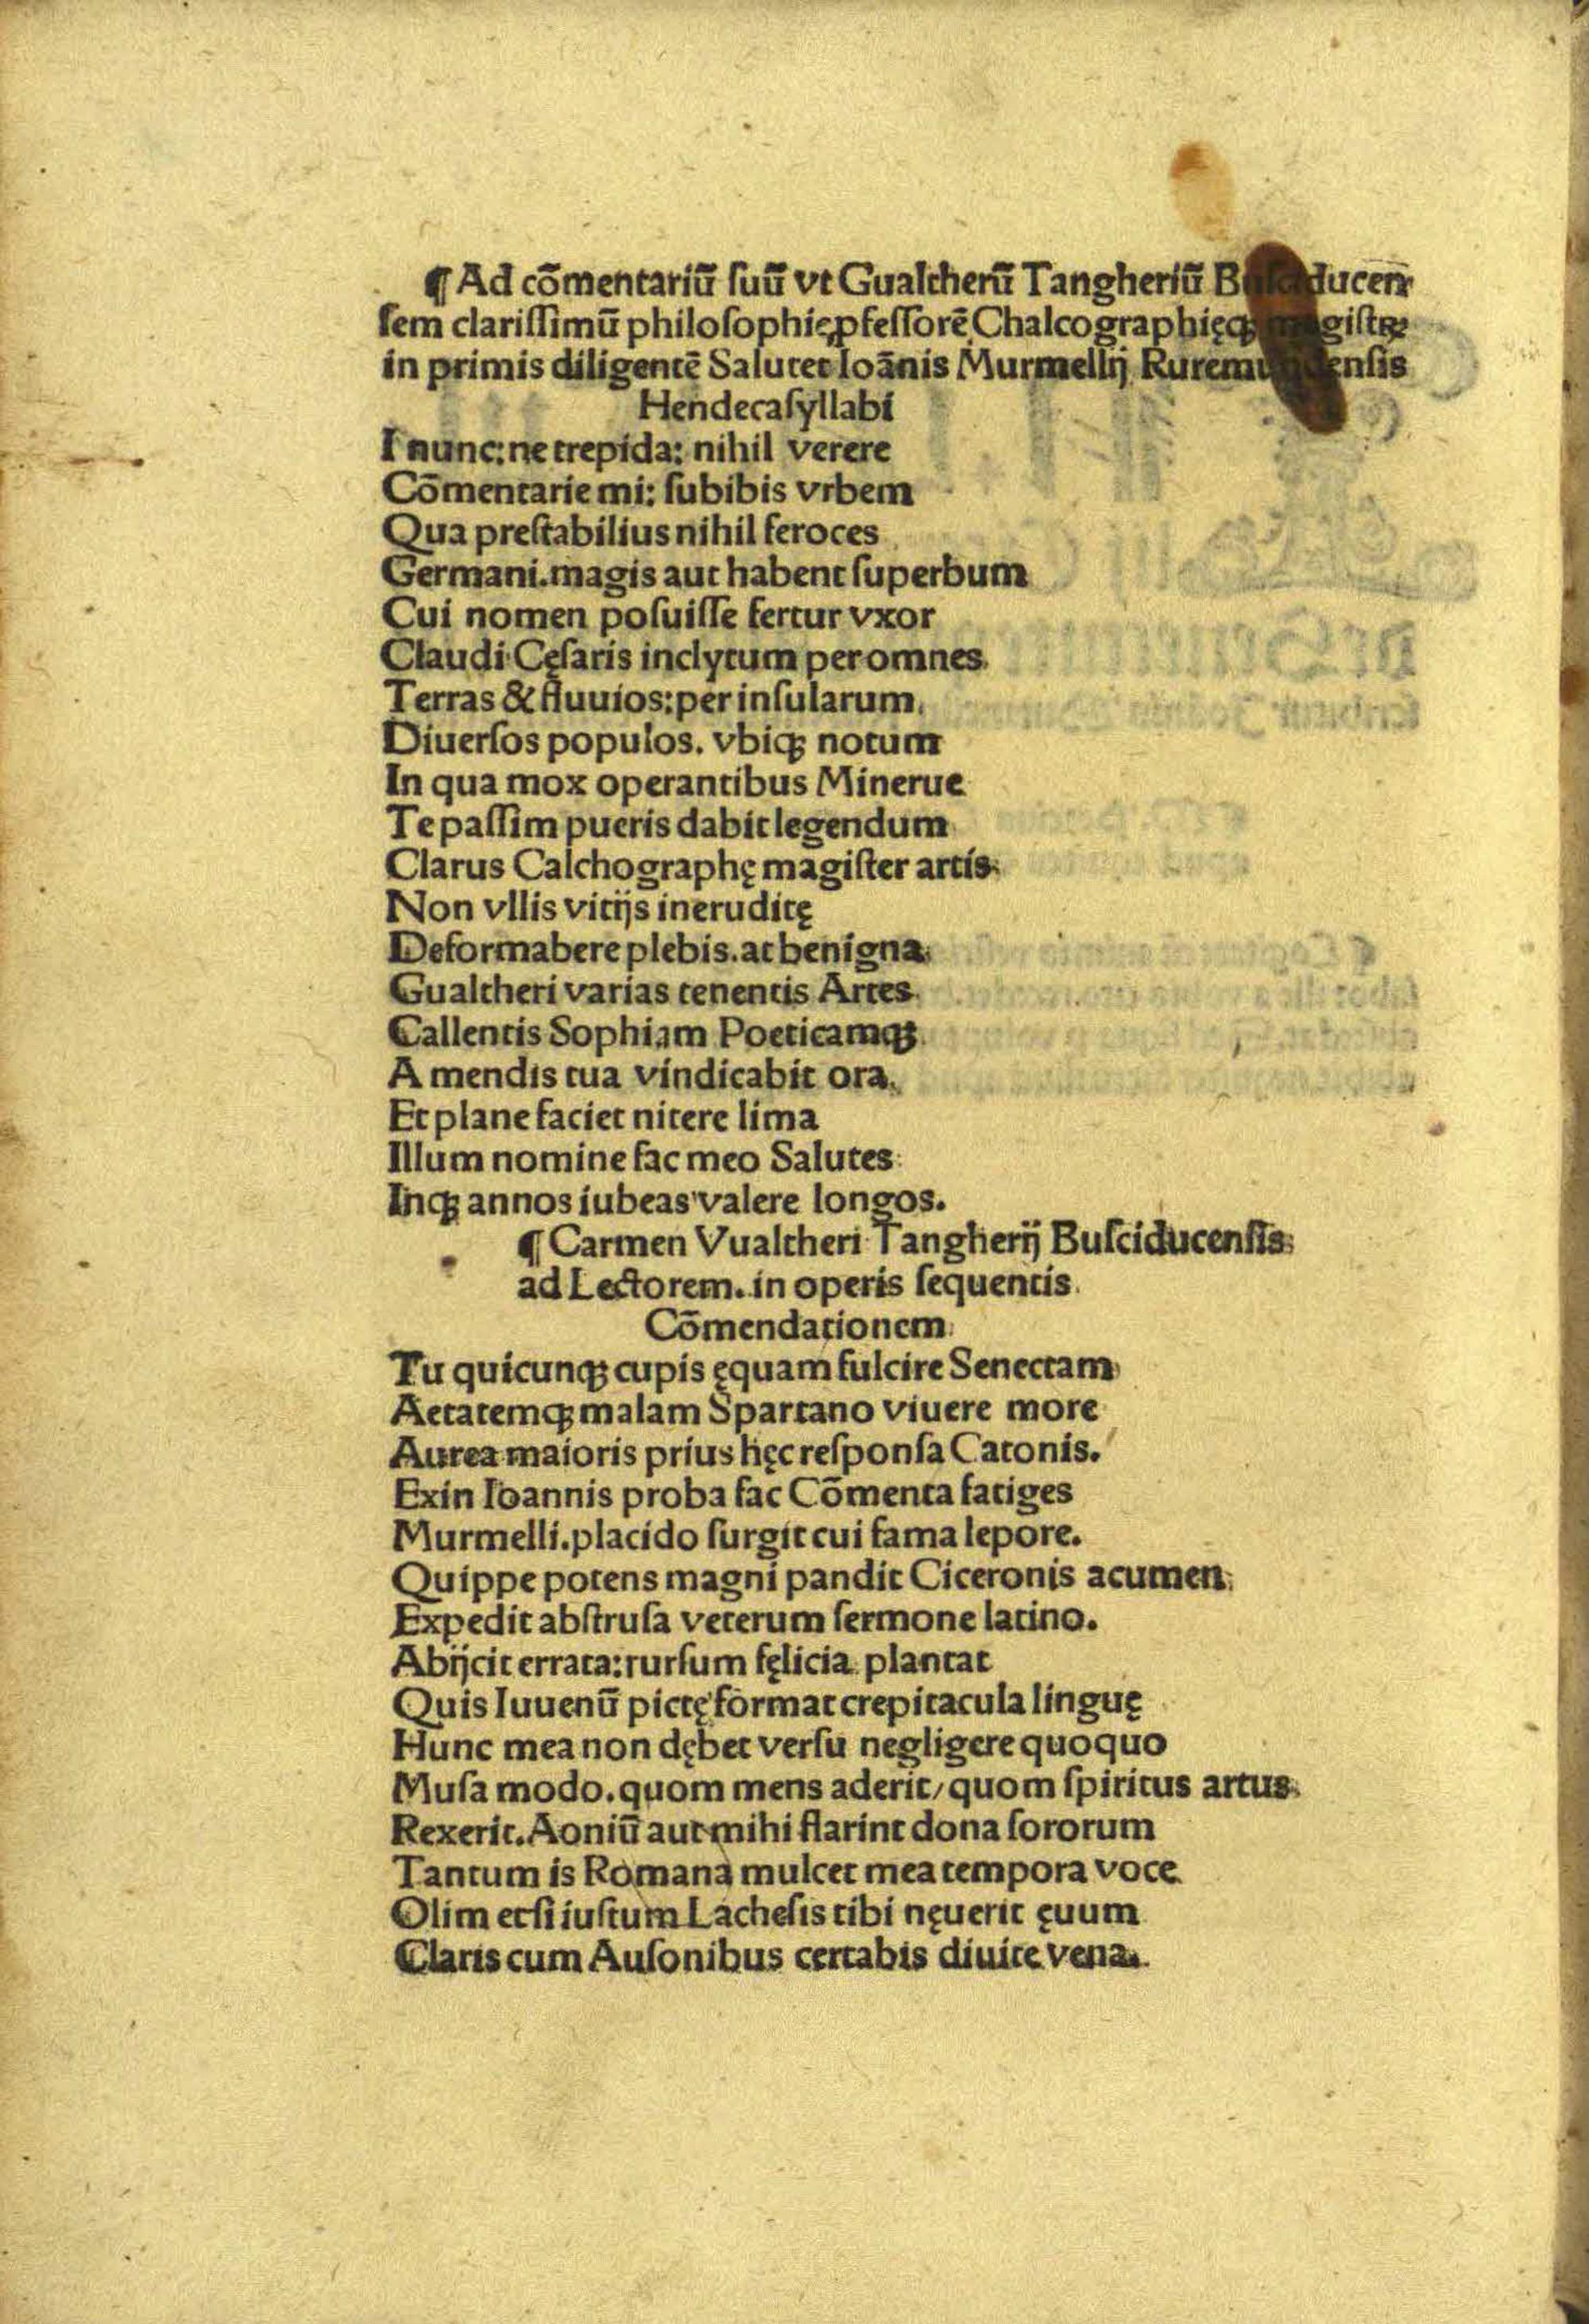 ¶ Ad cõmentariũ ſuũ vt Gualtherũ Tangheriũ Buſciducen
ſem clariſſimũ philoſophię ꝓfeſſorẽ Chalcographięqꝫ magiſtꝝ
in primis diligentẽ Salutet Ioãnis Murmellij Ruremundenſis
Hendecaſyllabi
I nunc: ne trepida: nihil verere
Cõmentarie mi: ſubibis vrbem
Qua preſtabilius nihil feroces
Germani. magis aut habent ſuperbum
Cui nomen poſuiſſe fertur vxor
Claudi Cęſaris inclytum per omnes
Terras & fluuios: per inſularum
Diuerſos populos. vbiqꝫ notum
In qua mox operantibus Minerue
Te paſſim pueris dabit legendum
Clarus Calchographę magiſter artis
Non vllis vitijs ineruditę
Deformabere plebis. at benigna
Gualtheri varias tenentis Artes
Callentis Sophiam Poeticamqꝫ
A mendis tua vindicabit ora.
Et plane faciet nitere lima
Illum nomine fac meo Salutes
Inqꝫ annos iubeas valere longos.
¶ Carmen Vualtheri Tangherij Buſciducenſis
ad Lectorem. in operis ſequentis
Cõmendationem
Tu quicunqꝫ cupis ęquam fulcire Senectam
Aetatemqꝫ malam Spartano viuere more
Aurea maioris prius hęc reſponſa Catonis.
Exin Ioannis proba fac Cõmenta fatiges
Murmelli. placido ſurgit cui fama lepore.
Quippe potens magni pandit Ciceronis acumen
Expedit abſtruſa veterum ſermone latino.
Abijcit errata: rurſum fęlicia plantat
Quis Iuuenũ pictę format crepitacula linguę
Hunc mea non dębet verſu negligere quoquo
Muſa modo. quom mens aderit / quom ſpiritus artus
Rexerit. Aoniũ aut mihi flarint dona ſororum
Tantum is Romana mulcet mea tempora voce
Olim etſi iuſtum Lacheſis tibi nęuerit ęuum
Claris cum Auſonibus certabis diuite vena.